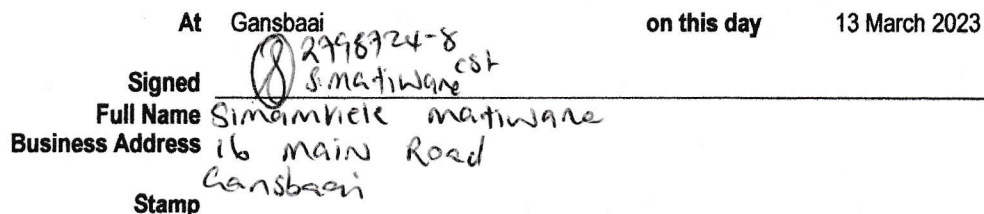 At Gansbaai on this day 13 March 2023
2798724-8
Signed S. Matiwane CST
Full Name Simamkele Matiwane
Business Address 16 Main Road
Gansbaai
Stamp